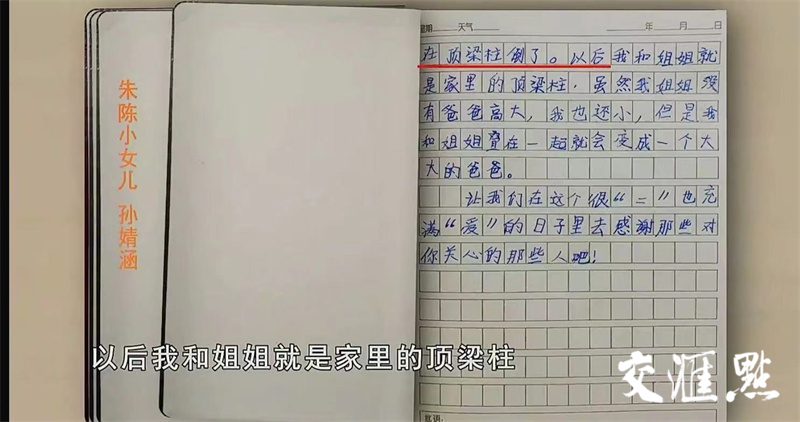 星期 天气 年 月 日
在顶梁柱倒了。以后我和姐姐就
是家里的顶梁柱，虽然我姐姐没
有爸爸高大，我也还小，但是我
和姐姐叠在一起就会变成一个大
大的爸爸。
让我们在这个很“二”也充
满“爱”的日子里去感谢那些对
你关心的那些人吧！
批语：
朱陈小女儿 孙婧涵
以后我和姐姐就是家里的顶梁柱
交汇點